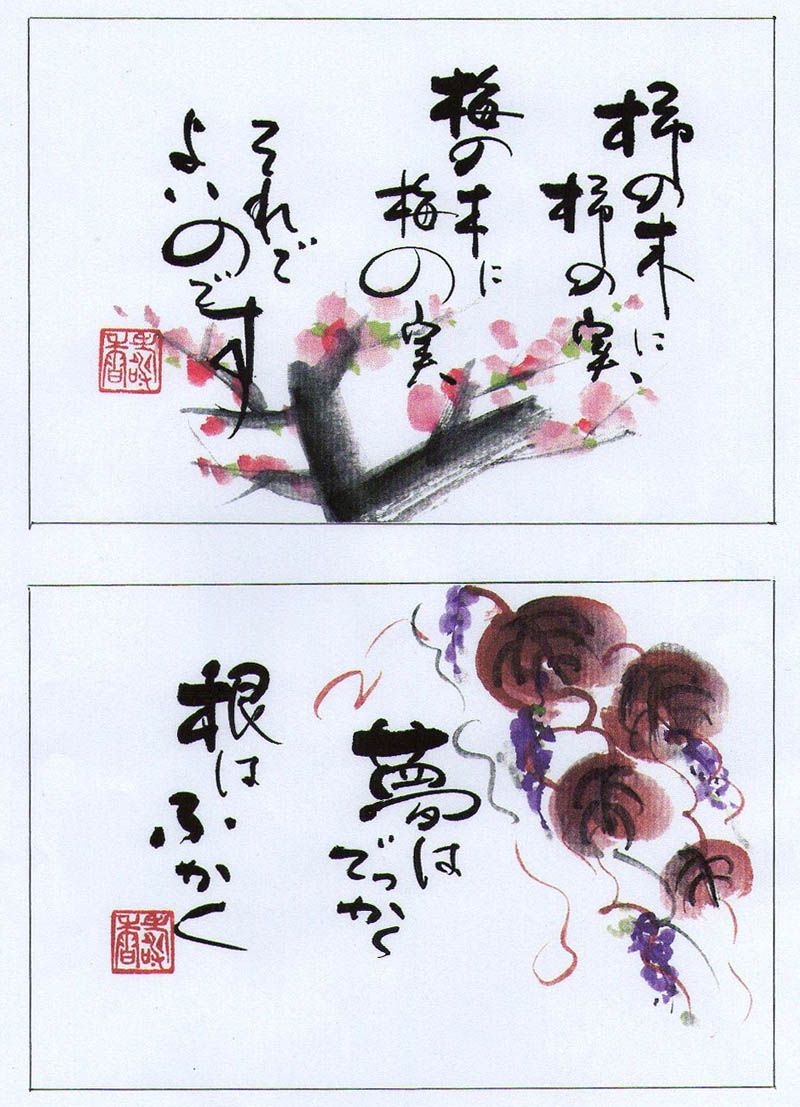 柿の木に、
柿の実、
梅の木に
梅の実、
それで
よいのです
夢は
でっかく
根は
ふかく